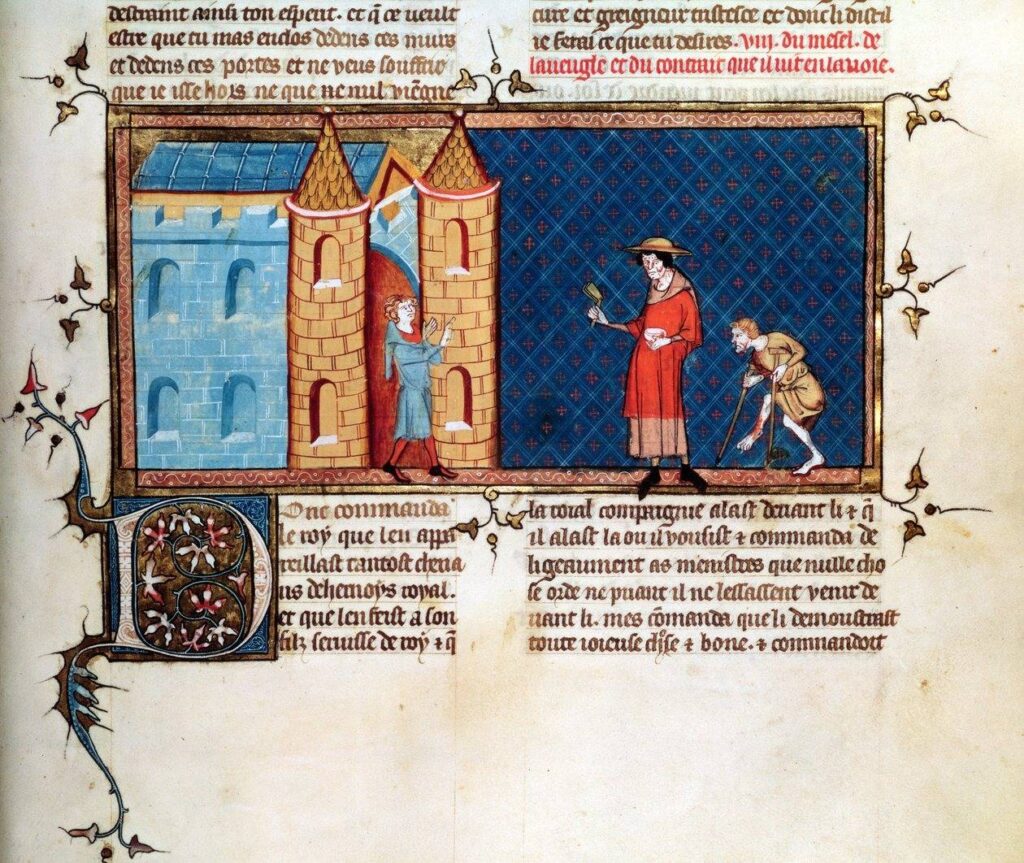 destraint ainsi ton esperit. et q̃ ce veult
estre que tu mas enclos dedens ces murs
et dedens ces portes et ne veus souffrir
que ie isse hors ne que ne nul viẽgne
cure et greigneur tristesce et donc li dist il
ie ferai ce que tu desires. viii. du mesel. de
laueugle et du contrait que il vit en la voie.
Donc commanda
le roy que len appa
reillast tantost cheua
us dehernoys royal.
et que len feist a son
filz seruisse de roy ⁊ q̃
la roial compaignie alast deuant li ⁊ q̃
il alast la ou il vousist ⁊ commanda de
ligeaument as menistres que nulle cho
se orde ne puant il ne lessassent venir de
uant li. mes cõmanda que li demoustrast
toute ioieuse chose ⁊ bone. ⁊ commandoit